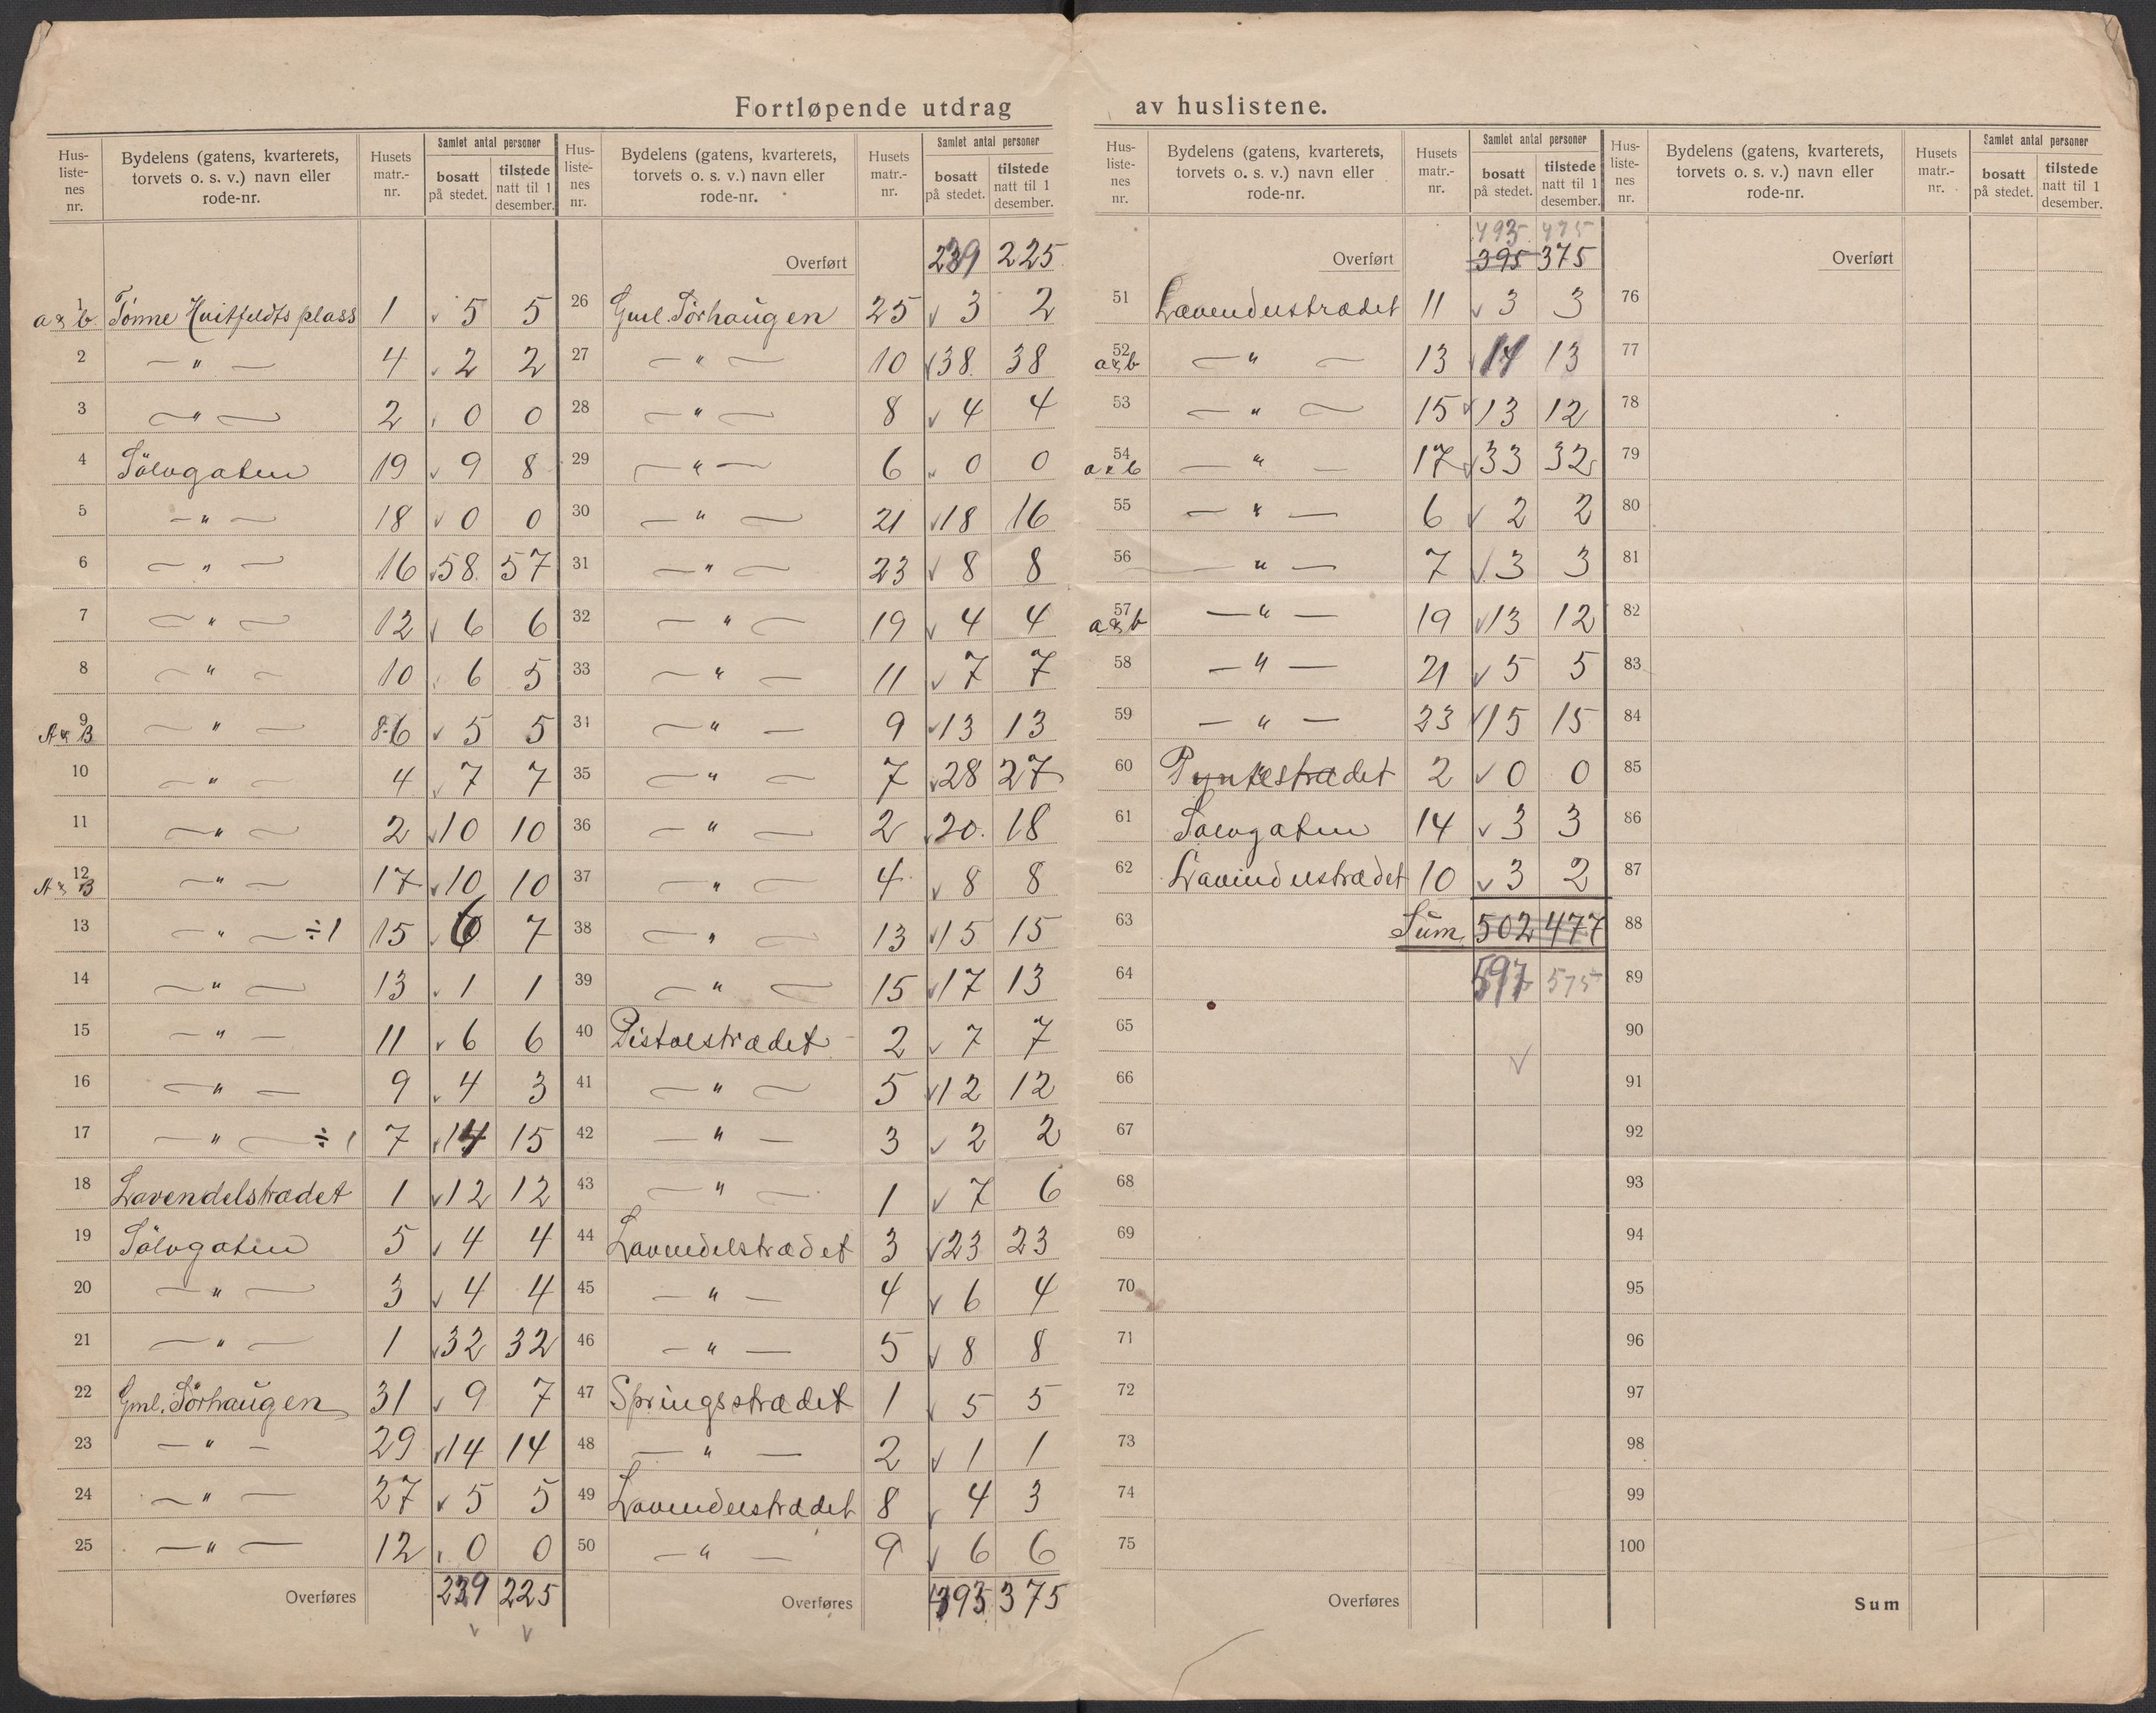 Fortløpende utdrag av huslistene.
Hus-liste-nes nr. | Bydelens (gatens, kvarterets, torvets o. s. v.) navn eller rode-nr. | Husets matr.-nr. | Samlet antal personer bosatt på stedet. | tilstede natt til 1 desember.
1 a & b. Tønne Huitfeldts plass 1 v 5 5
2 — " — 4 v 2 2
3 — " — 2 v 0 0
4 Sølvgaten 19 v 9 8
5 — " — 18 v 0 0
6 — " — 16 v 58. 57
7 — " — 12 v 6 6
8 — " — 10 v 6 5
9 A & B — " — 8-6 v 5 5
10 — " — 4 v 7 7
11 — " — 2 v 10 10
12 A & B — " — 17 v 10 10
13 — " — ÷1 15 v 6 7
14 — " — 13 v 1 1
15 — " — 11 v 6 6
16 — " — 9 v 4 3
17 — " — ÷1 7 v 14 15
18 Lavendelstrædet 1 v 12 12
19 Sølvgaten 5 v 4 4
20 — " — 3 v 4 4
21 — " — 1 v 32 32
22 Gml. Sørhaugen 31 v 9 7
23 — " — 29 v 14 14
24 — " — 27 v 5 5
25 — " — 12 v 0 0
Overføres 239 225
v v
Hus-liste-nes nr. | Bydelens (gatens, kvarterets, torvets o. s. v.) navn eller rode-nr. | Husets matr.-nr. | Samlet antal personer bosatt på stedet. | tilstede natt til 1 desember.
Overført 239 225
26 Gml. Sørhaugen 25 v 3 2
27 — " — 10 v 38. 38
28 — " — 8 v 4 4
29 — " — 6 v 0 0
30 — " — 21 v 18 16
31 — " — 23 v 8 8
32 — " — 19 v 4 4
33 — " — 11 v 7 7
34 — " — 9 v 13 13
35 — " — 7 v 28 27
36 — " — 2 v 20. 18
37 — " — 4 v 8 8
38 — " — 13 v 15 15
39 — " — 15 v 17 13
40 Pistolstrædet 2 v 7 7
41 — " — 5 v 12 12
42 — " — 3 v 2 2
43 — " — 1 v 7 6
44 Lavendelstrædet 3 v 23 23
45 — " — 4 v 6 4
46 — " — 5 v 8 8
47 Springsstrædet 1 v 5 5
48 — " — 2 v 1 1
49 Lavendelstrædet 8 v 4 3
50 — " — 9 v 6 6
Overføres 375
Hus-liste-nes nr. | Bydelens (gatens, kvarterets, torvets o. s. v.) navn eller rode-nr. | Husets matr.-nr. | Samlet antal personer bosatt på stedet. | tilstede natt til 1 desember.
493 475
Overført 395 375
51 Lavendelstrædet 11 v 3 3
52 a & b — " — 13 v 14 13
53 — " — 15 v 13 12
54 a & b — " — 17 v 33 32
55 — " — 6 v 2 2
56 — " — 7 v 3 3
57 a & b — " — 19 v 13 12
58 — " — 21 v 5 5
59 — " — 23 v 15 15
60 Pyntestrædet 2 v 0 0
61 Sølvgaten 14 v 3 3
62 Lavindelstrædet 10 v 3 2
63 Sum 502 477
64 597 575
65
v
66
67
68
69
70
71
72
73
74
75
Overføres
Hus-liste-nes nr. | Bydelens (gatens, kvarterets, torvets o. s. v.) navn eller rode-nr. | Husets matr.-nr. | Samlet antal personer bosatt på stedet. | tilstede natt til 1 desember.
Overført
76
77
78
79
80
81
82
83
84
85
86
87
88
89
90
91
92
93
94
95
96
97
98
99
100
Sum